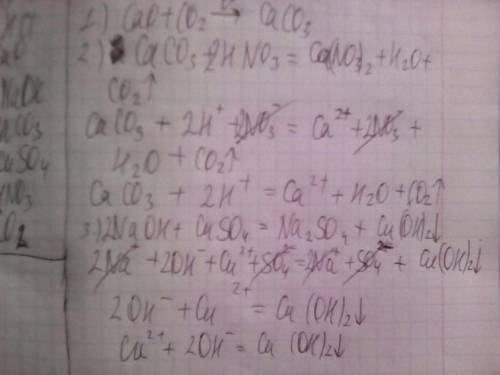 1) CaO + CO₂ → CaCO₃
2) CaCO₃ + 2HNO₃ = Ca(NO₃)₂ + H₂O +
CO₂↑
CaCO₃ + 2H⁺ + 2NO₃⁻ = Ca²⁺ + 2NO₃⁻ +
H₂O + CO₂↑
CaCO₃ + 2H⁺ = Ca²⁺ + H₂O + CO₂↑
3) 2NaOH + CuSO₄ = Na₂SO₄ + Cu(OH)₂↓
2Na⁺ + 2OH⁻ + Cu²⁺ + SO₄²⁻ = 2Na⁺ + SO₄²⁻ + Cu(OH)₂↓
2OH⁻ + Cu²⁺ = Cu(OH)₂↓
Cu²⁺ + 2OH⁻ = Cu(OH)₂↓